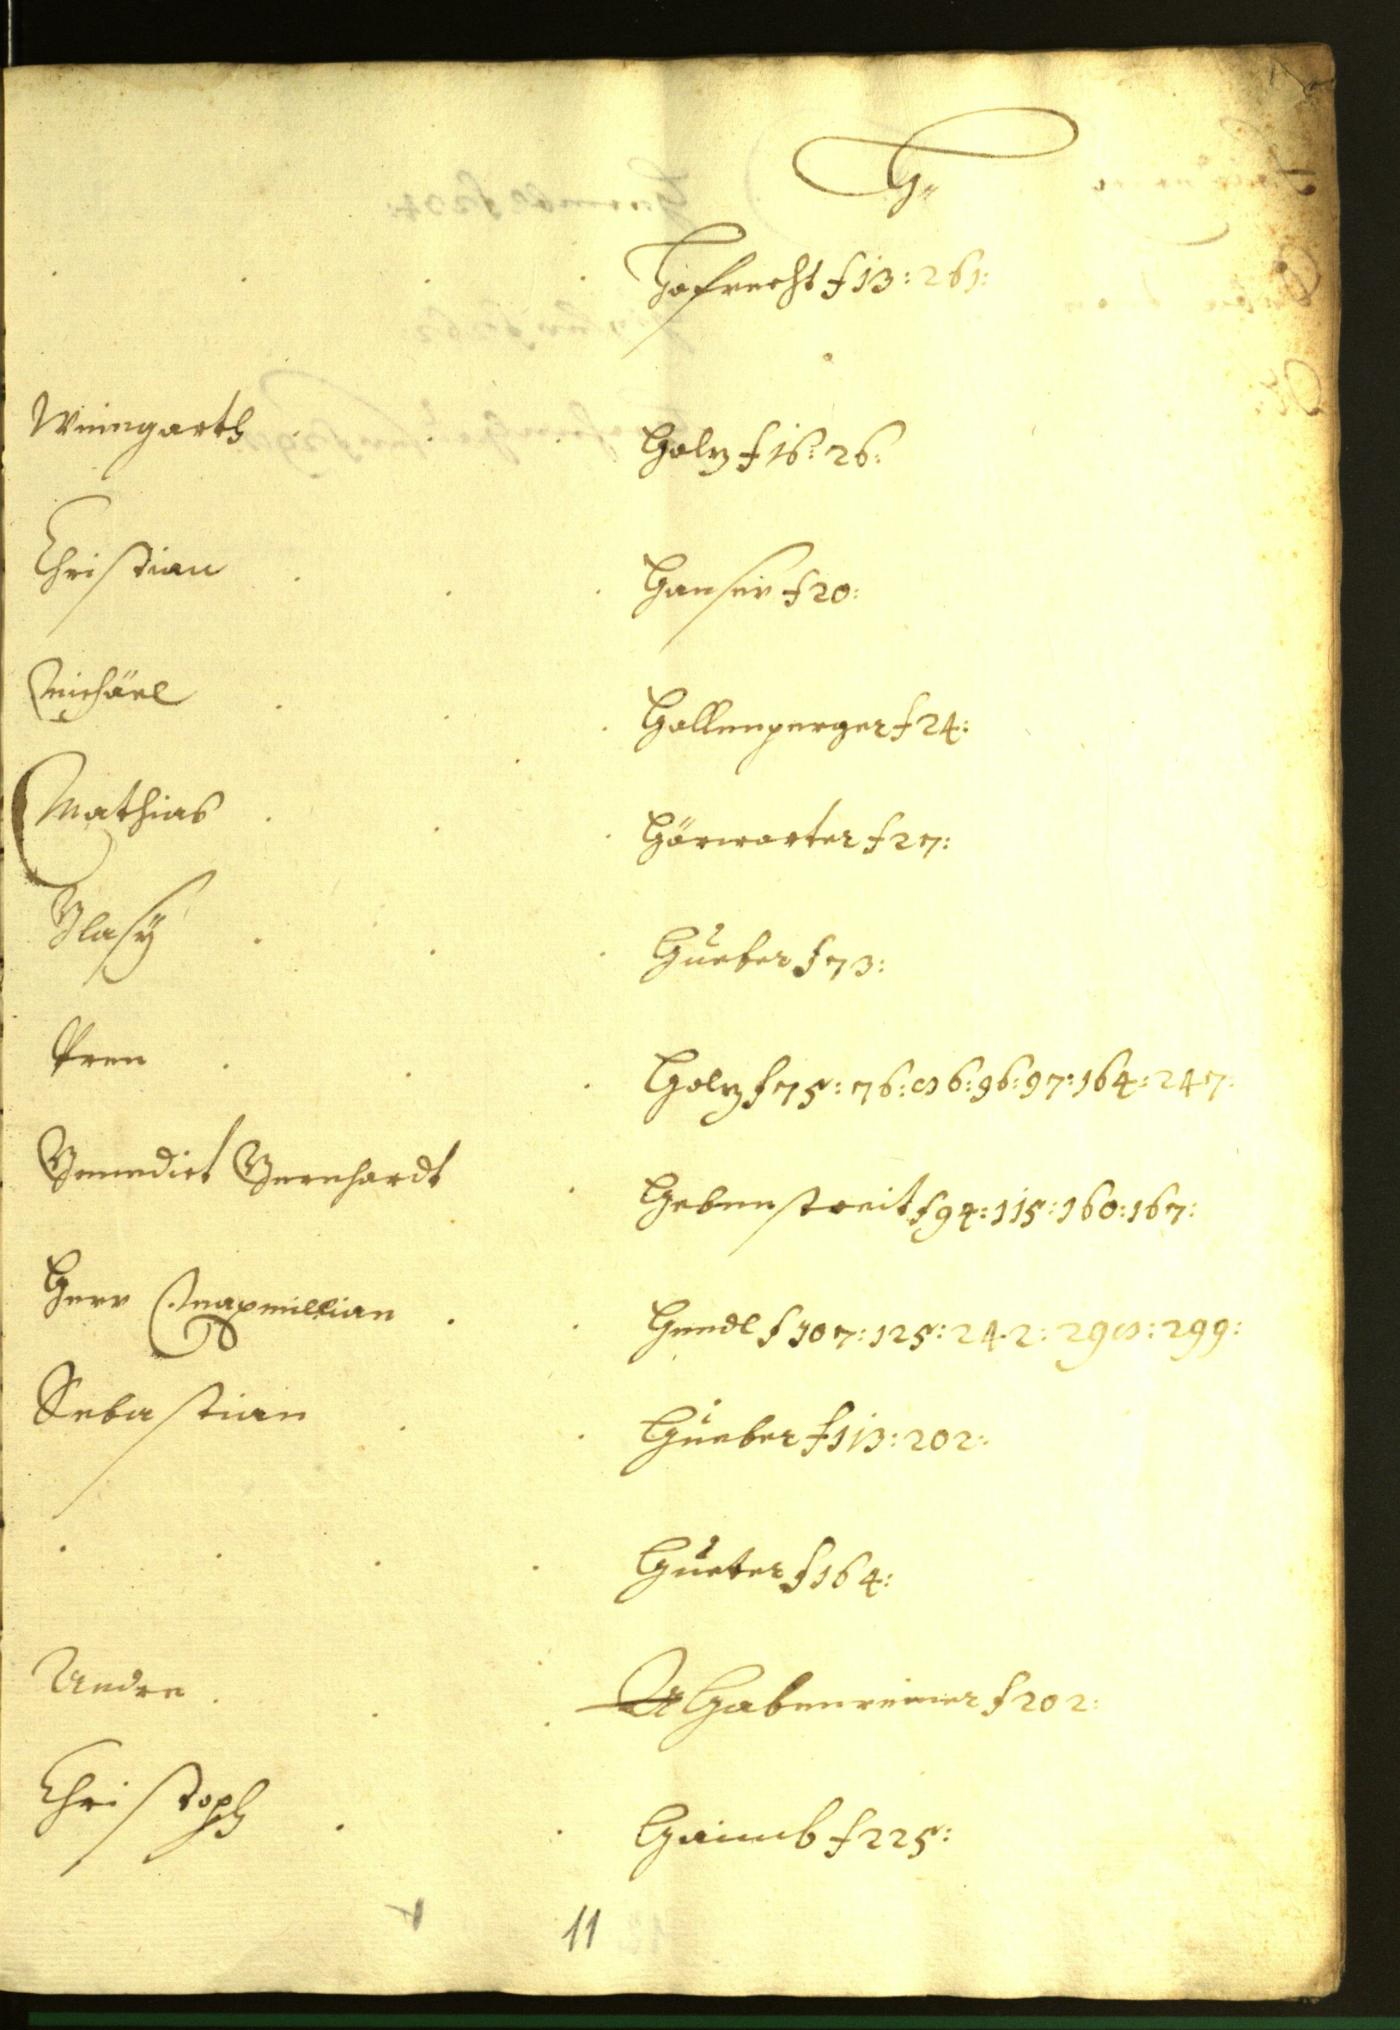 H
Hofrecht f 13: 261:
Weingarth Holz f 16: 26:
Christian Hauser f 20:
Michäel Hollenperger f 24:
Mathias Hörwarter f 27:
Blasÿ Hueber f 73:
Pren Holz f 75: 76: 86: 96: 97: 164: 247:
Benedict Bernhardt Hebenstreit f 94: 115: 160: 167:
Herr Maxmillian Hendl f 107: 125: 242: 298: 299:
Sebastian Hueber f 113: 202:
Hueter f 164:
Andre Habenreiner f 202:
Christoph Haimb f 225:
11